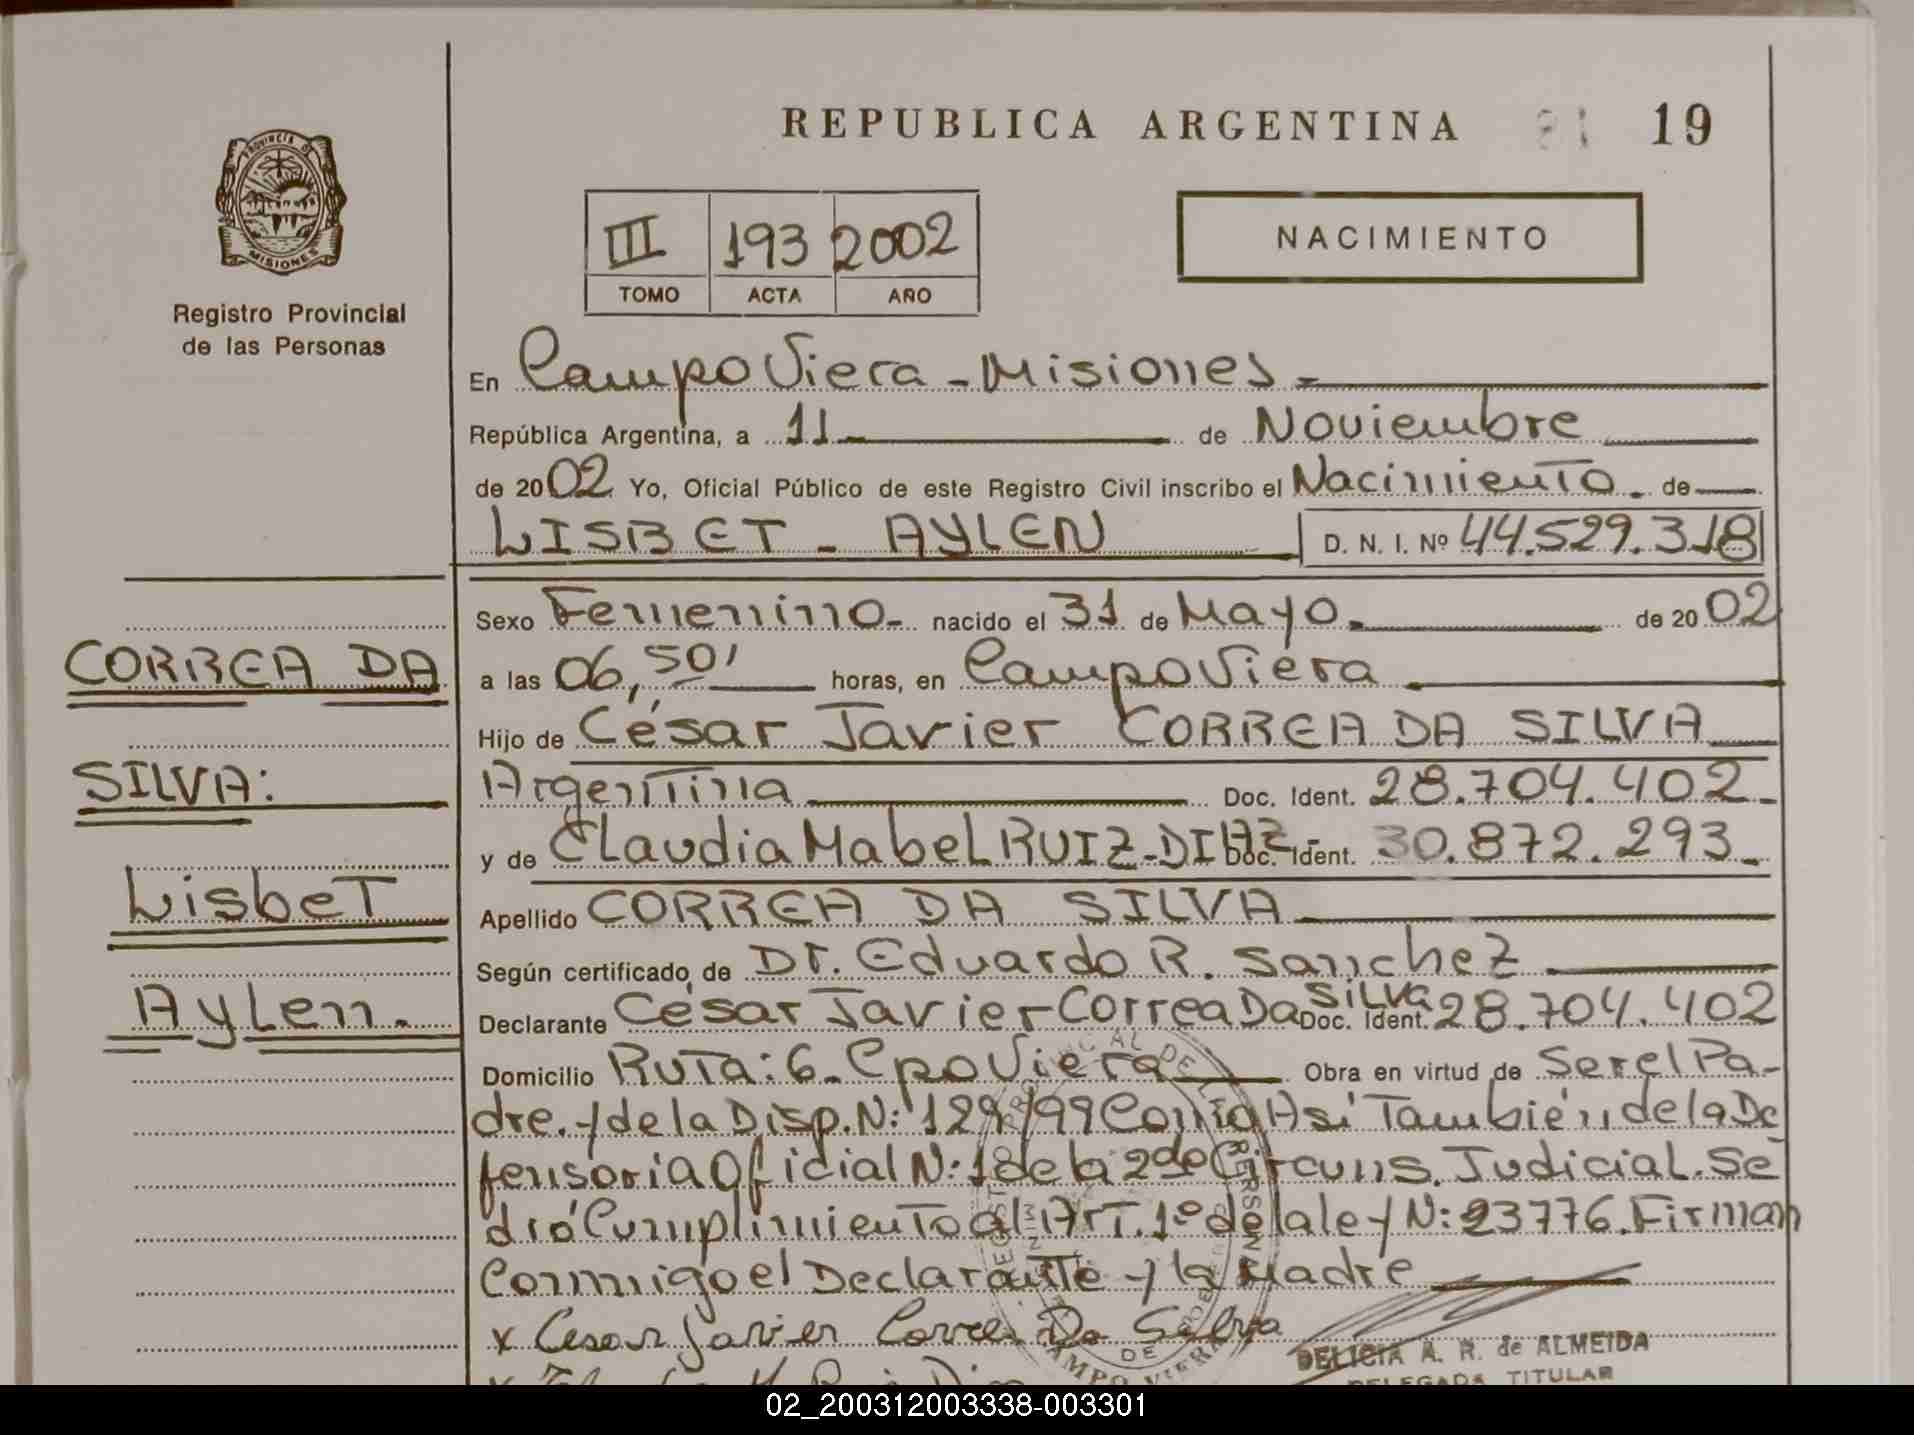 REPUBLICA ARGENTINA 19
PROVINCIA DE
MISIONES
Registro Provincial
de las Personas
III 193 2002
TOMO ACTA AÑO
NACIMIENTO
En Campo Viera - Misiones -
República Argentina, a 11 de Noviembre
de 2002 Yo, Oficial Público de este Registro Civil inscribo el Nacimiento de
LISBET - AYLEN D. N. I. Nº 44.529.318
Sexo Femenino - nacido el 31 de Mayo de 2002
a las 06,50' horas, en Campo Viera
Hijo de César Javier CORREA DA SILVA
Argentina Doc. Ident. 28.704.402
y de Claudia Mabel RUIZ-DIAZ- Doc. Ident. 30.872.293
Apellido CORREA DA SILVA
Según certificado de Dr. Eduardo R. Sanchez
Declarante César Javier Correa Da Silva Doc. Ident. 28.704.402
Domicilio Ruta: 6 - Cpo Viera Obra en virtud de Ser el Pa-
dre. y de la Disp. N: 129/99 Como Asi También de la De
fensoria Oficial N: 1 de la 2do Circuns. Judicial. Se
dió Cumplimiento al Art. 1º de la ley N: 23776. Firman
Conmigo el Declarante y la Madre
x Cesar Javier Correa Da Silva
DELICIA A. R. de ALMEIDA
DELEGADA TITULAR
CORREA DA
SILVA:
Lisbet
Aylen.
02_200312003338-003301